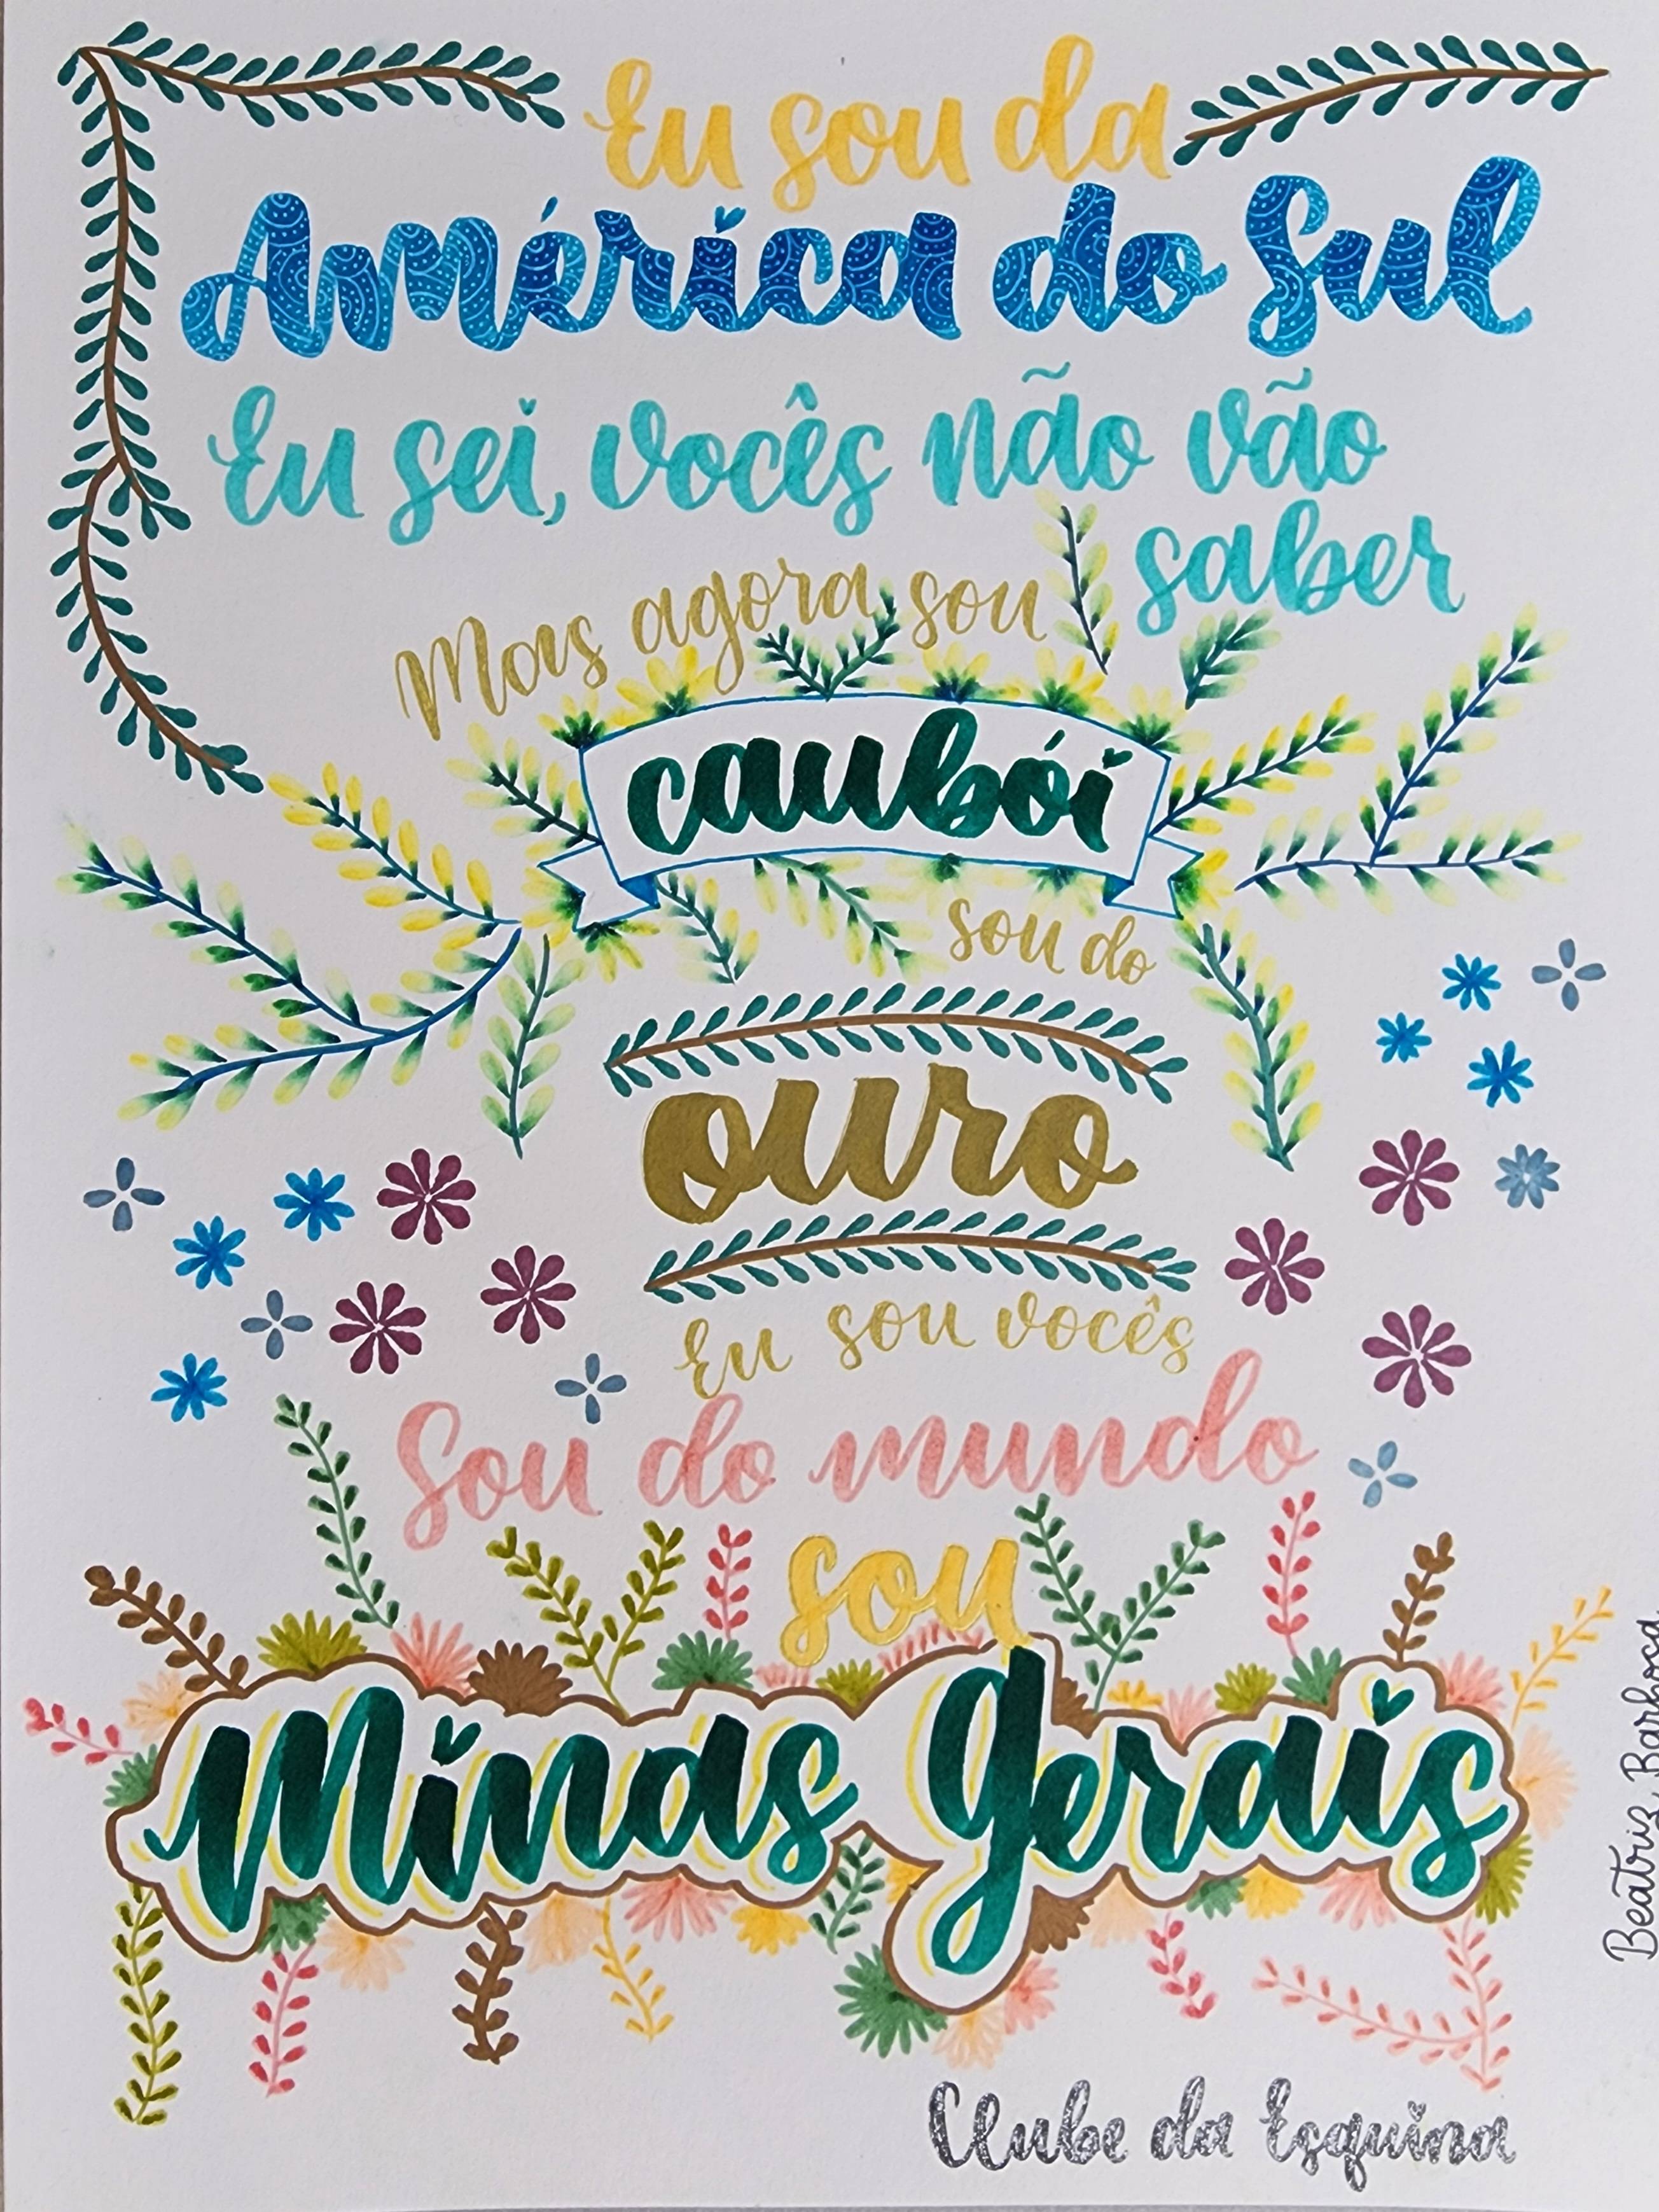 Eu sou da
América do Sul
Eu sei, vocês não vão
saber
Mas agora sou
caubói
sou do
ouro
Eu sou vocês
Sou do mundo
sou
Minas Gerais
Clube da Esquina
Beatriz Barbosa